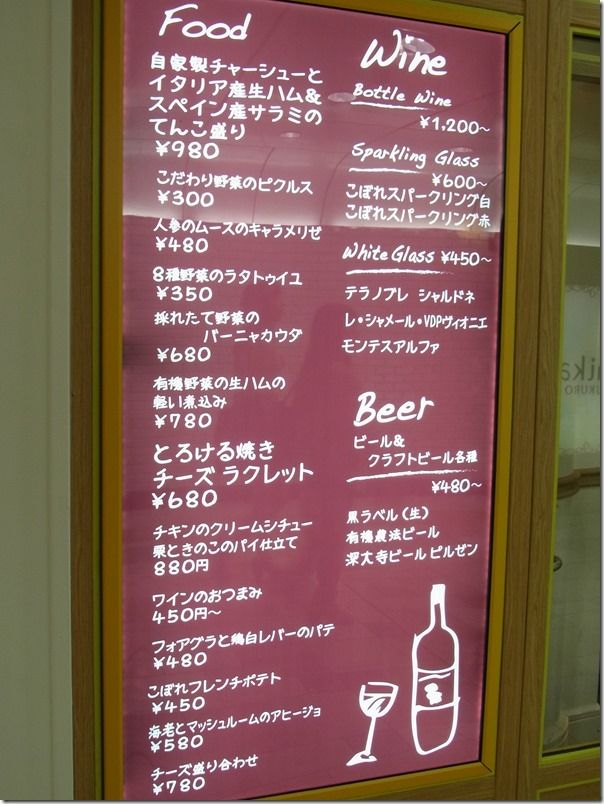 Food
自家製チャーシューと
イタリア産生ハム&
スペイン産サラミの
てんこ盛り
¥980
こだわり野菜のピクルス
¥300
人参のムースのキャラメリゼ
¥480
8種野菜のラタトゥイユ
¥350
採れたて野菜の
バーニャカウダ
¥680
有機野菜の生ハムの
軽い煮込み
¥780
とろける焼き
チーズ ラクレット
¥680
チキンのクリームシチュー
栗ときのこのパイ仕立て
880円
ワインのおつまみ
450円~
フォアグラと鶏白レバーのパテ
¥480
こぼれフレンチポテト
¥450
海老とマッシュルームのアヒージョ
¥580
チーズ盛り合わせ
¥780
Wine
Bottle Wine
¥1,200~
Sparkling Glass
¥600~
こぼれスパークリング白
こぼれスパークリング赤
White Glass ¥450~
テラノブレ シャルドネ
レ・シャメール・VDPヴィオニエ
モンテスアルファ
Beer
ビール&
クラフトビール各種
¥480~
黒ラベル(生)
有機農法ビール
深大寺ビール ピルゼン